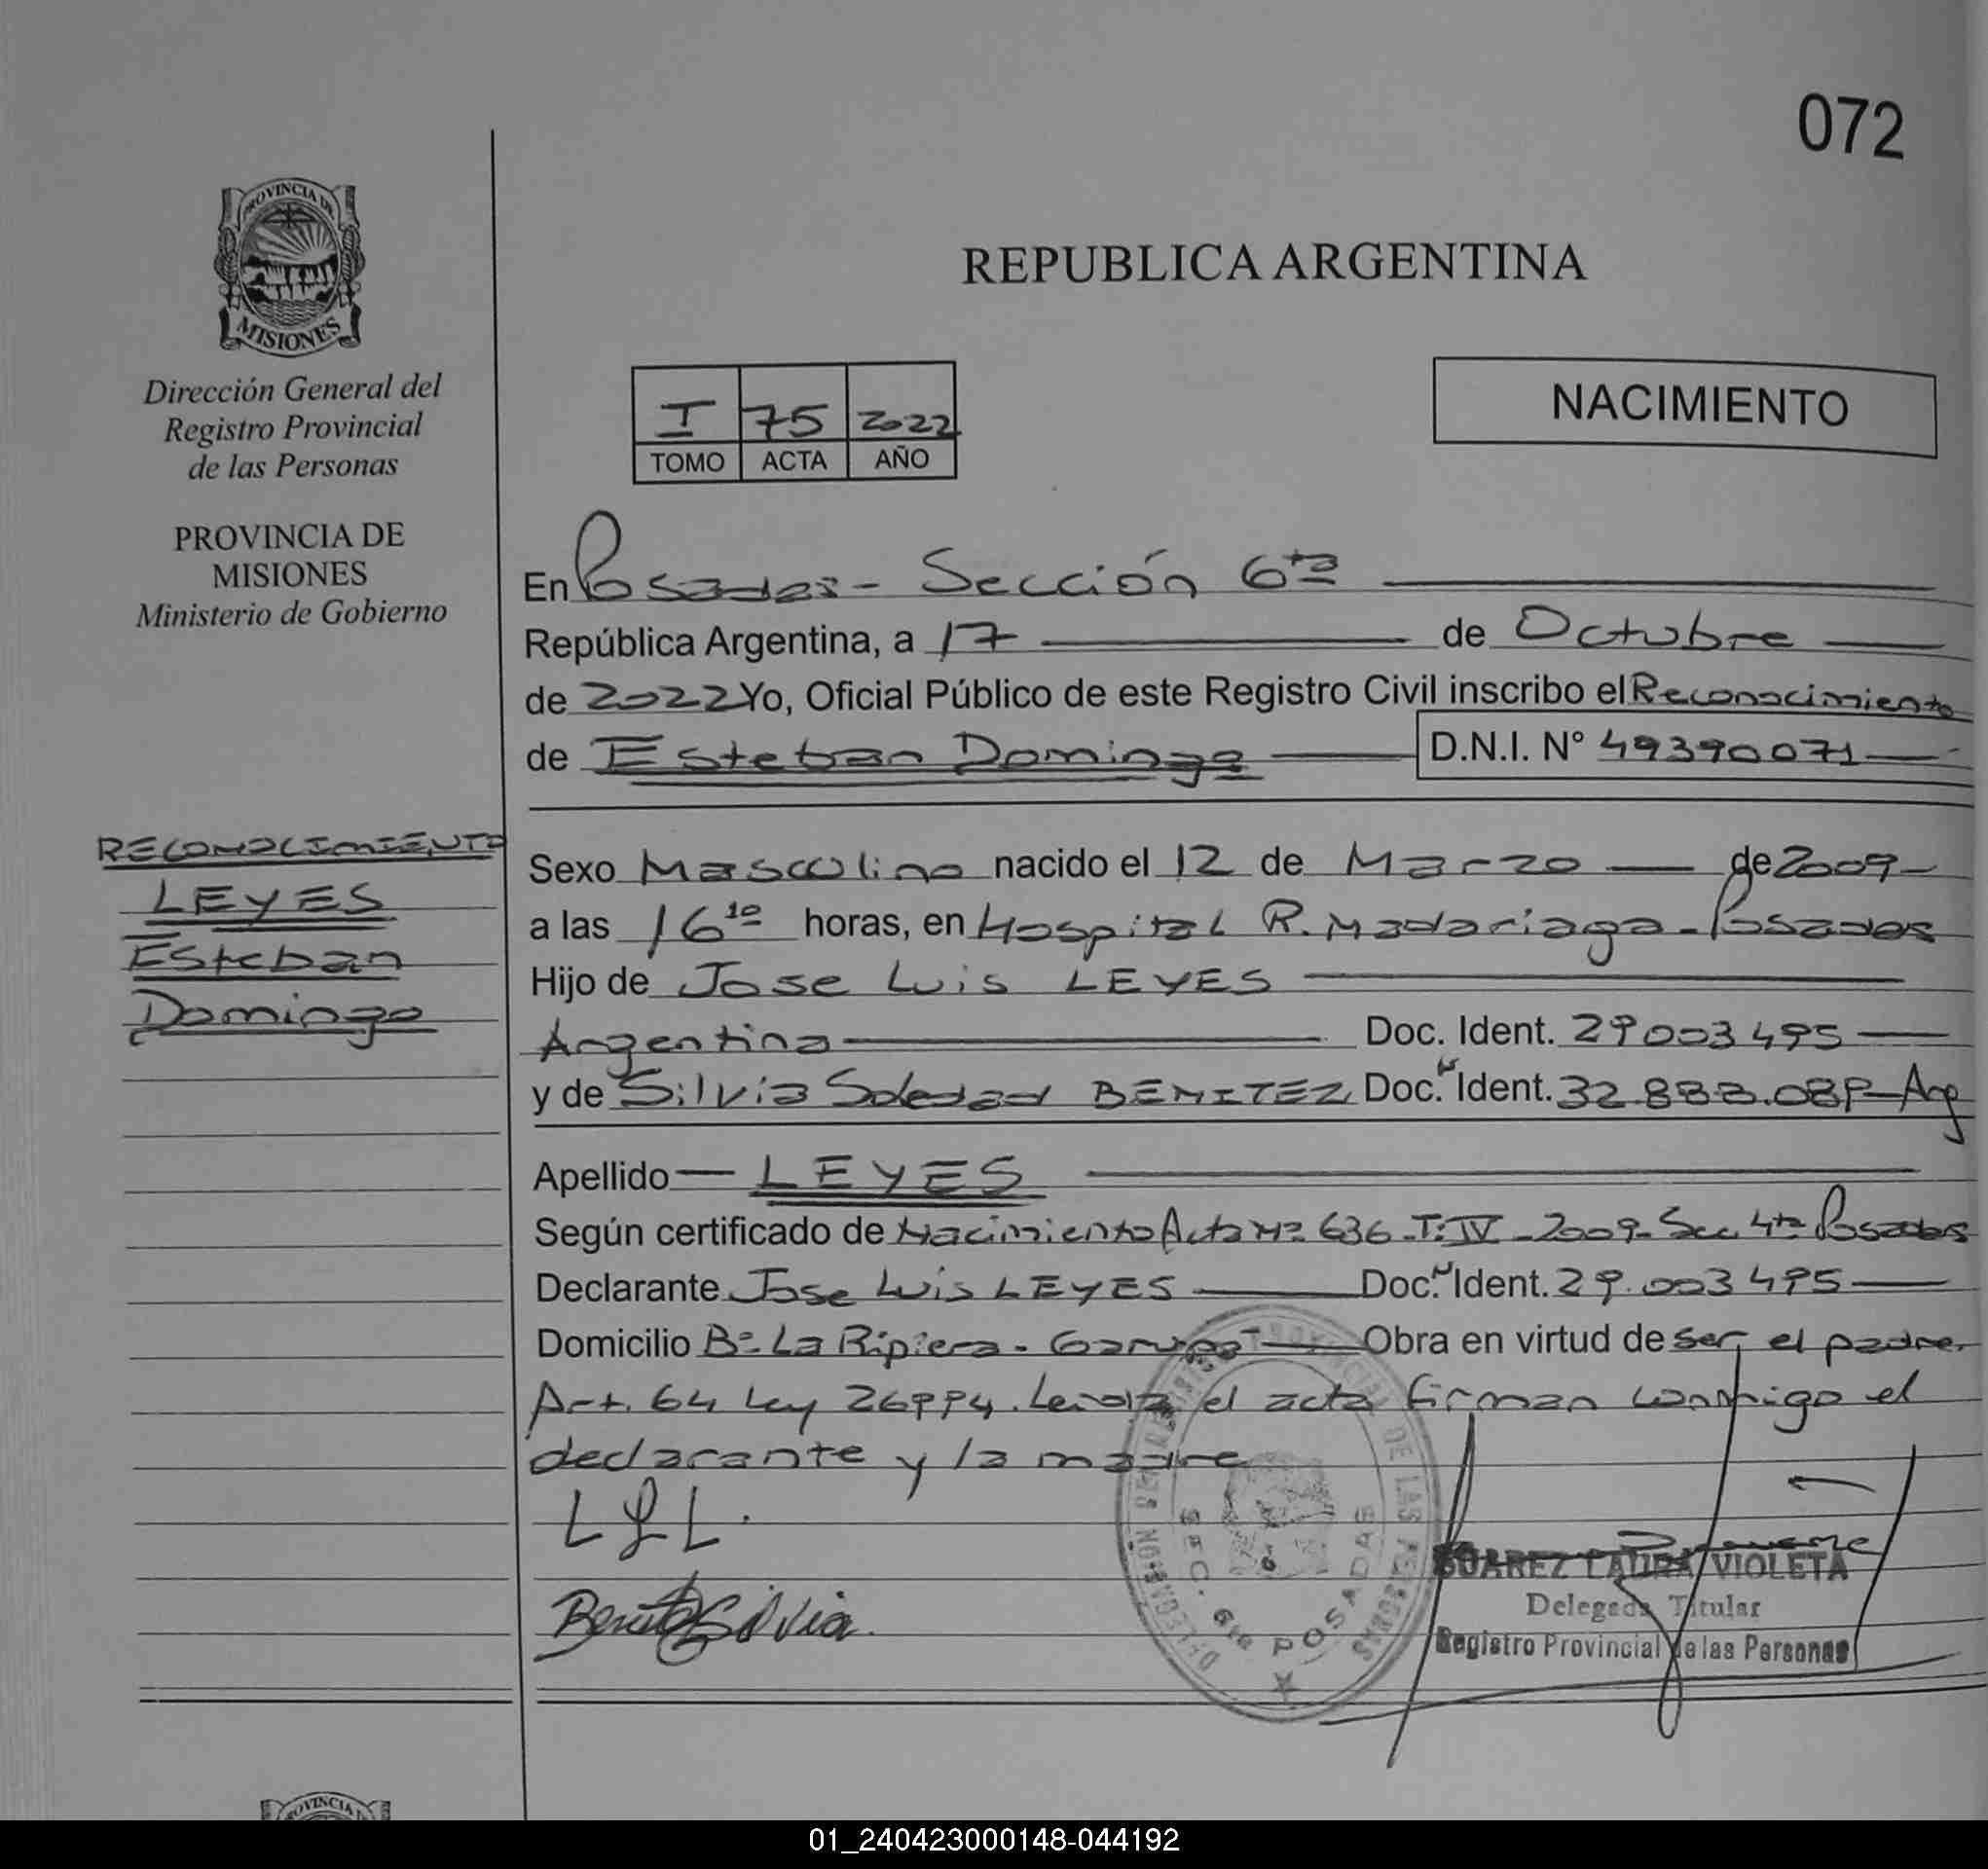 072
PROVINCIA DE
MISIONES
REPUBLICA ARGENTINA
Dirección General del
Registro Provincial
de las Personas
PROVINCIA DE
MISIONES
Ministerio de Gobierno
I 75 2022
TOMO ACTA AÑO
NACIMIENTO
En Posadas - Sección 6ta
República Argentina, a 17 de Octubre
de 2022 Yo, Oficial Público de este Registro Civil inscribo el Reconocimiento
de Esteban Domingo D.N.I. N° 49390071
RECONOCIMIENTO
LEYES
Esteban
Domingo
Sexo Masculino nacido el 12 de Marzo de 2009-
a las 16 10 horas, en Hospital R. Madariaga - Posadas
Hijo de Jose Luis LEYES
Argentina Doc. Ident. 29003495
y de Silvia Soledad BENITEZ Doc. Ident. Arg
Apellido LEYES
Según certificado de Nacimiento Acta Nº 636 - T: IV - 2009 - Sec. 4ta Posadas
Declarante Jose Luis LEYES Doc. Ident. 29.003495
Domicilio Bº La Ripiera - Garupa Obra en virtud de ser el padre.
Art. 64 Ley 26994. Leída el acta firman conmigo el
declarante y la madre
LJL.
Benitez Silvia.
DELEGACIÓN DEL REGISTRO PROVINCIAL DE LAS PERSONAS
SEC. 6ta POSADAS
SUAREZ LAURA VIOLETA
Delegada Titular
Registro Provincial de las Personas
PROVINCIA DE
01_240423000148-044192